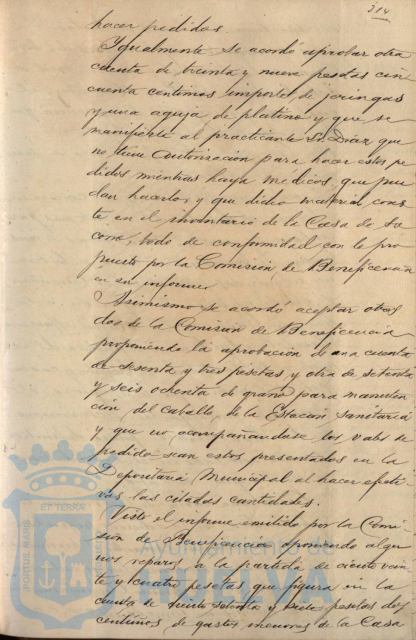 314
hacer pedidos.
Igualmente se acordó aprobar otra
cuenta de treinta y nueve pesetas cin
cuenta centimos importe de jeringas
y una aguja de platino y que se
manifieste al practicante Sr. Diaz que
no tiene autorización para hacer estos pe
didos mientras haya medicos que pue
dan hacerlos y que dicho material cons
te en el inventario de la Casa de So
corro, todo de conformidad con lo pro
puesto por la Comisión de Beneficencia
en su informe.
Asimismo se acordó aceptar otros
dos de la Comisión de Beneficencia
proponiendo la aprobación de una cuenta
de sesenta y tres pesetas y otra de setenta
y seis ochenta de grano para manuten
ción del caballo de la Estación Sanitaria
y que no acompañandose los vales de
pedido sean estos presentados en la
Depositaria Municipal al hacer efecti
vas las citadas cantidades.
Visto el informe emitido por la Comi
sión de Beneficencia oponiendo algu
nos reparos a la partida de ciento vein
te y cuatro pesetas que figura en la
cuenta de ciento setenta y siete pesetas dos
centimos de gastos menores de la Casa
PORTUS MARIS ET TERRÆ
Ayuntamiento de
HUELVA